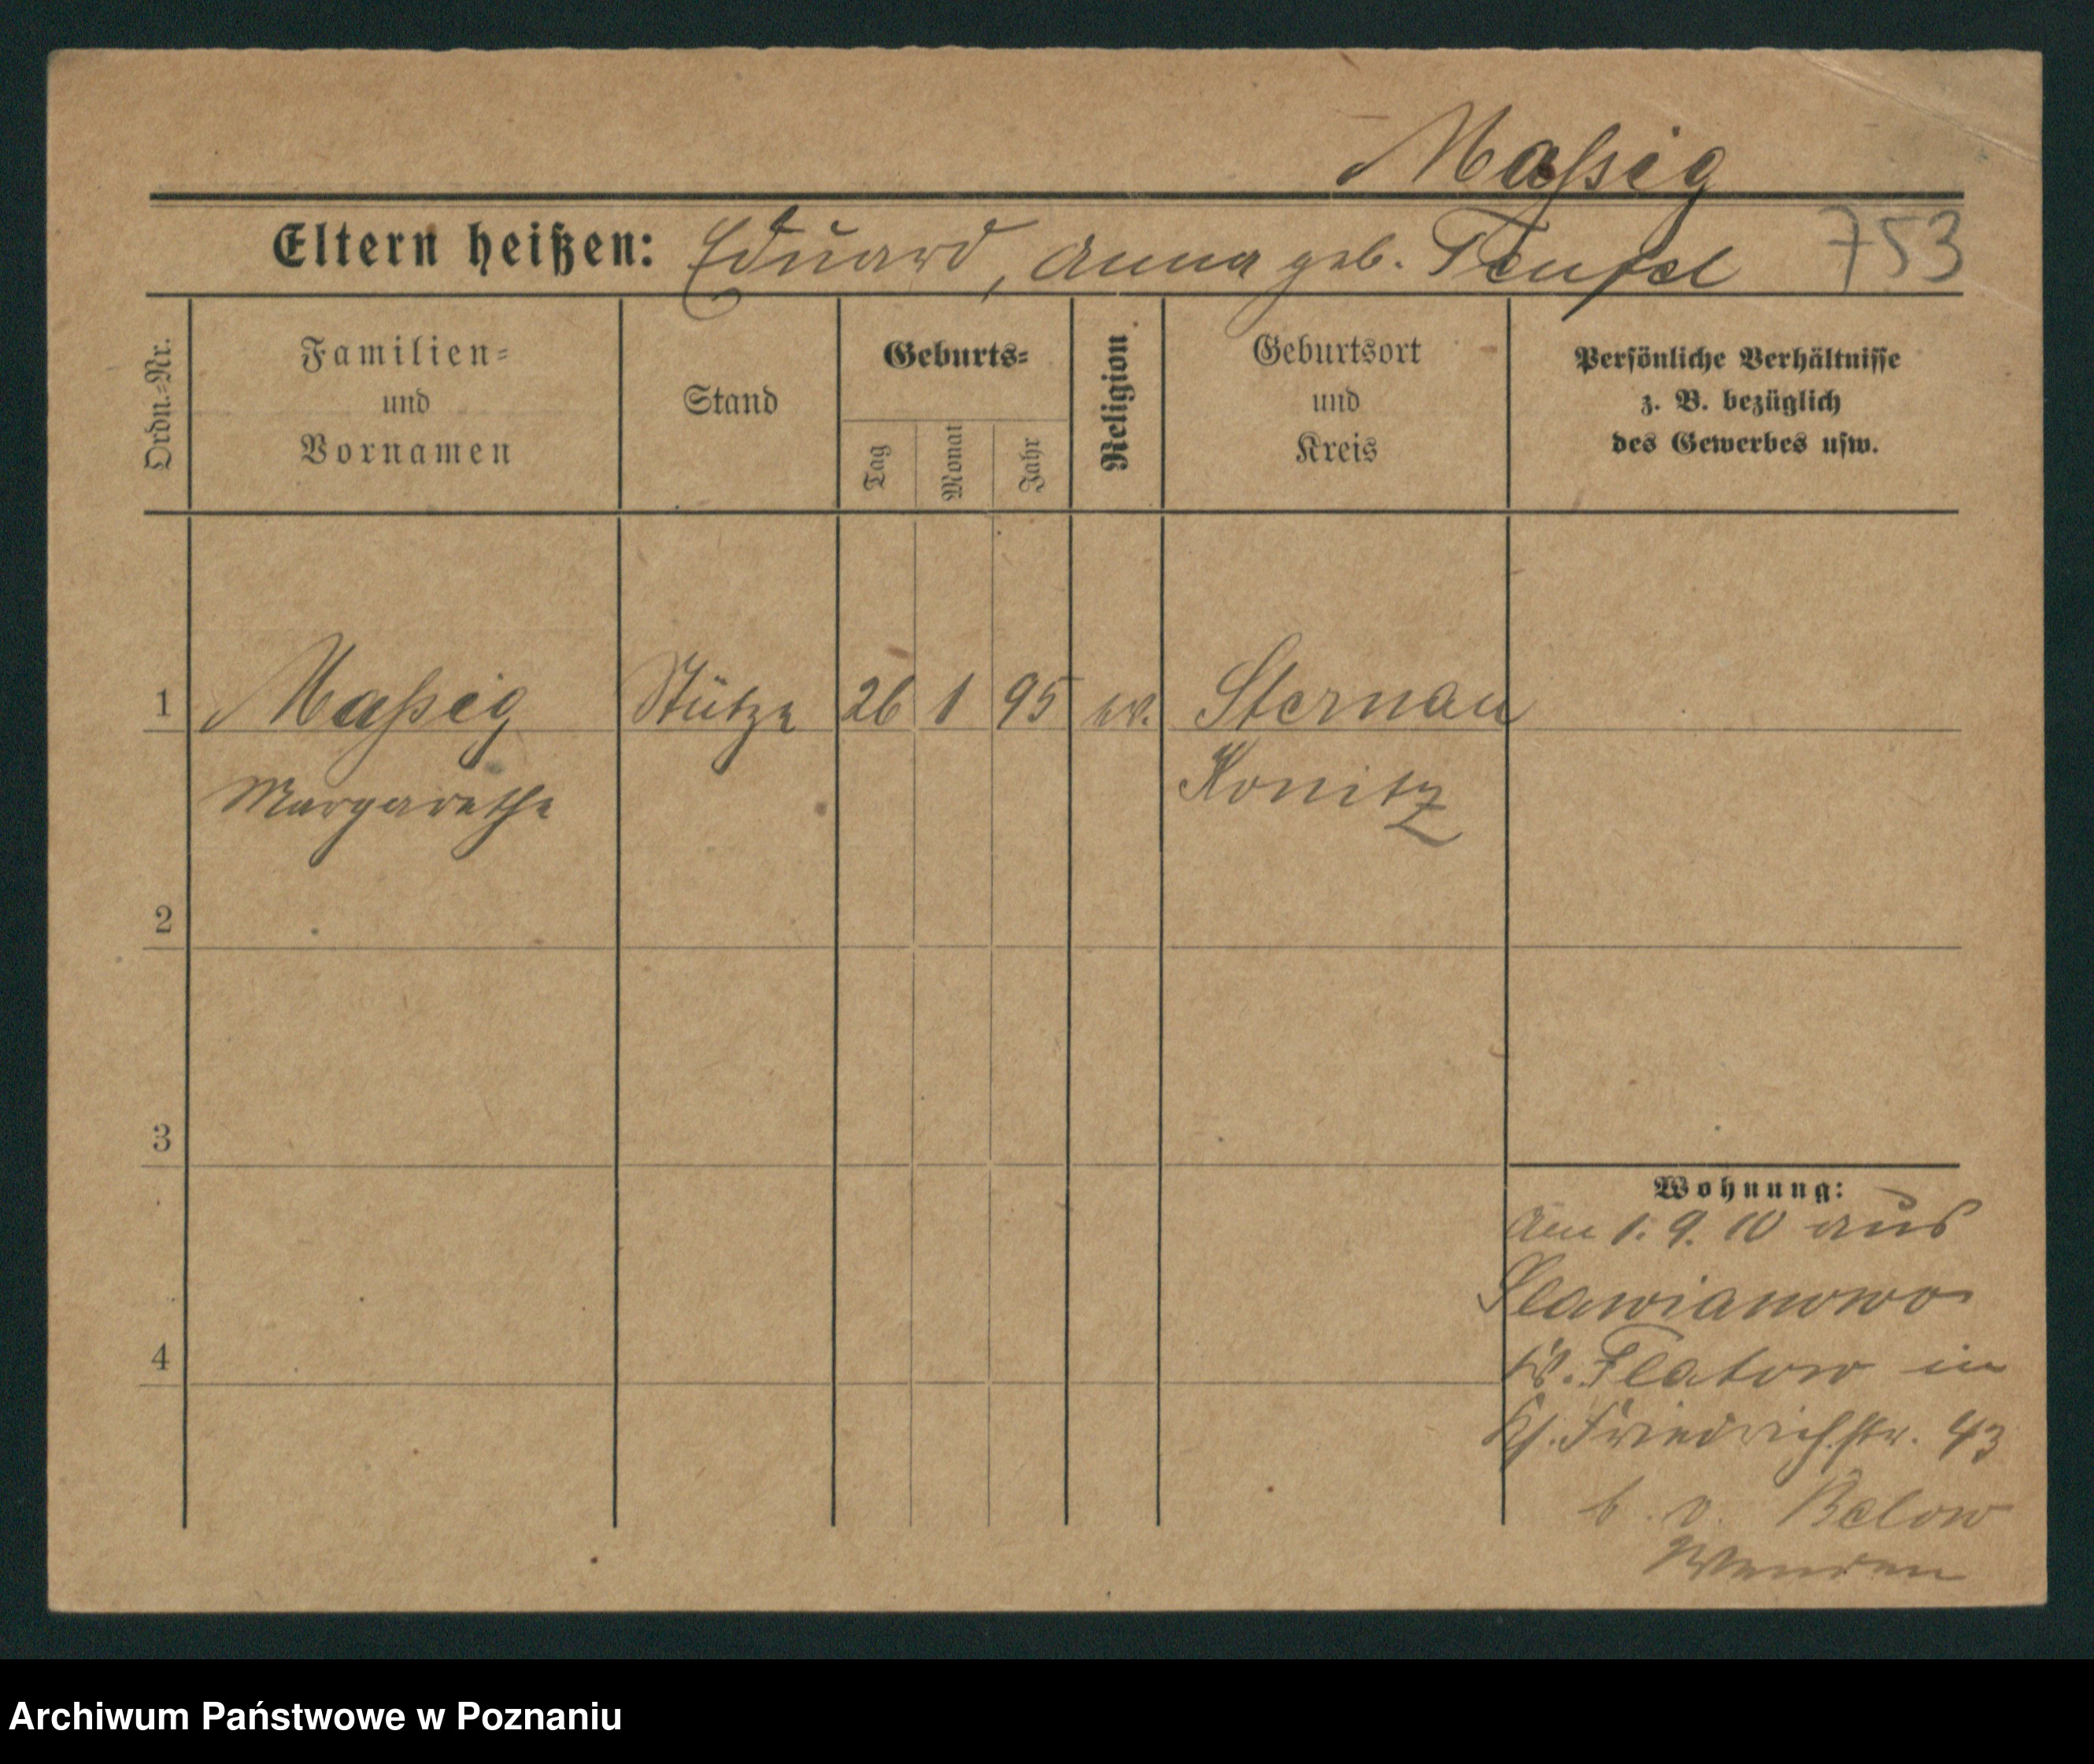 Maßig
Eltern heißen: Eduard, Anna geb. Teufel 753
Ordn.-Nr.
Familien-
und
Vornamen
Stand
Geburts-
Tag
Monat
Jahr
Religion
Geburtsort
und
Kreis
Persönliche Verhältnisse
z. B. bezüglich
des Gewerbes usw.
1 Maßig Stütze 26 1 95 ev. Sternau
Margarethe Konitz
2
3
4
Wohnung:
Am 1. 9. 10 aus
Slawianowo
Kr. Flatow in
Friedrichstr. 43
b. v. Below